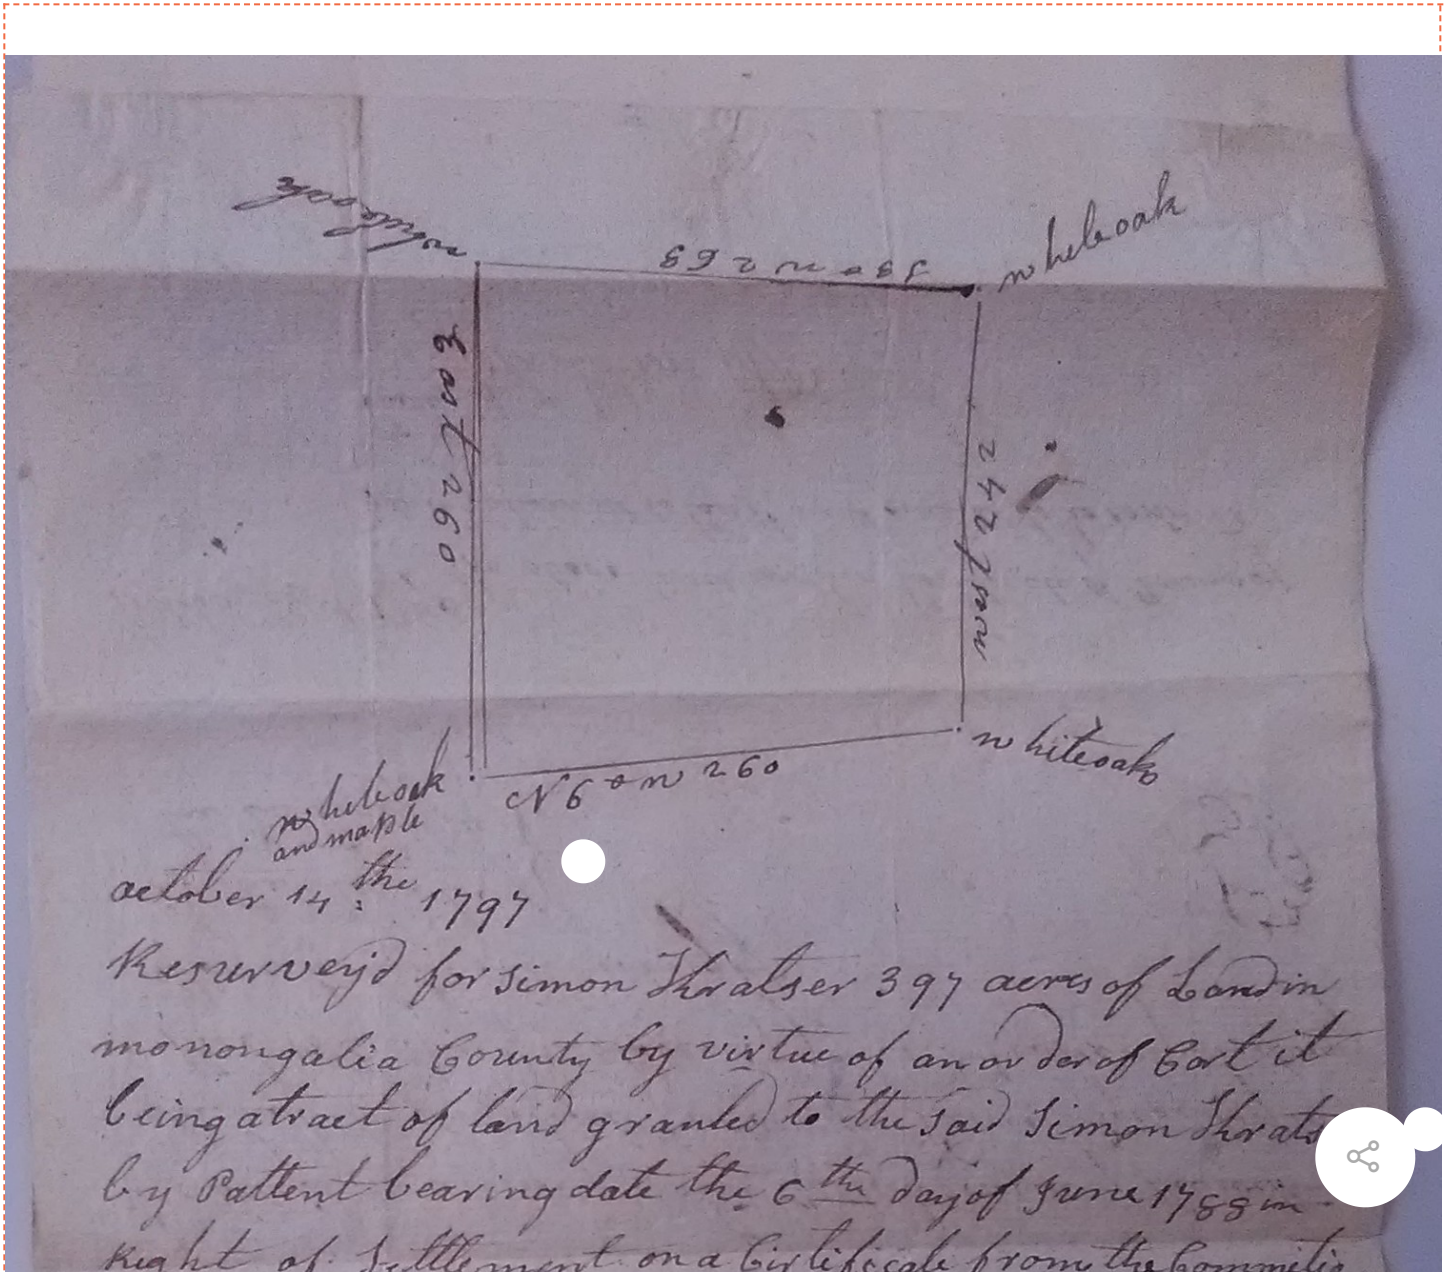 whiteoak
whiteoak
S80 W 269
East 260
242 West
whiteoak
whiteoak
and maple
N6° W 260
october 14th 1797
Resurvey'd for Simon Thratser 397 acres of Land in
monongalia County by virtue of an order of Cort it
being a tract of land granted to the Said Simon Thrats
by Pattent bearing date the 6th day of June 1788 in
Right of Settlement on a Cirtificate from the Commitio